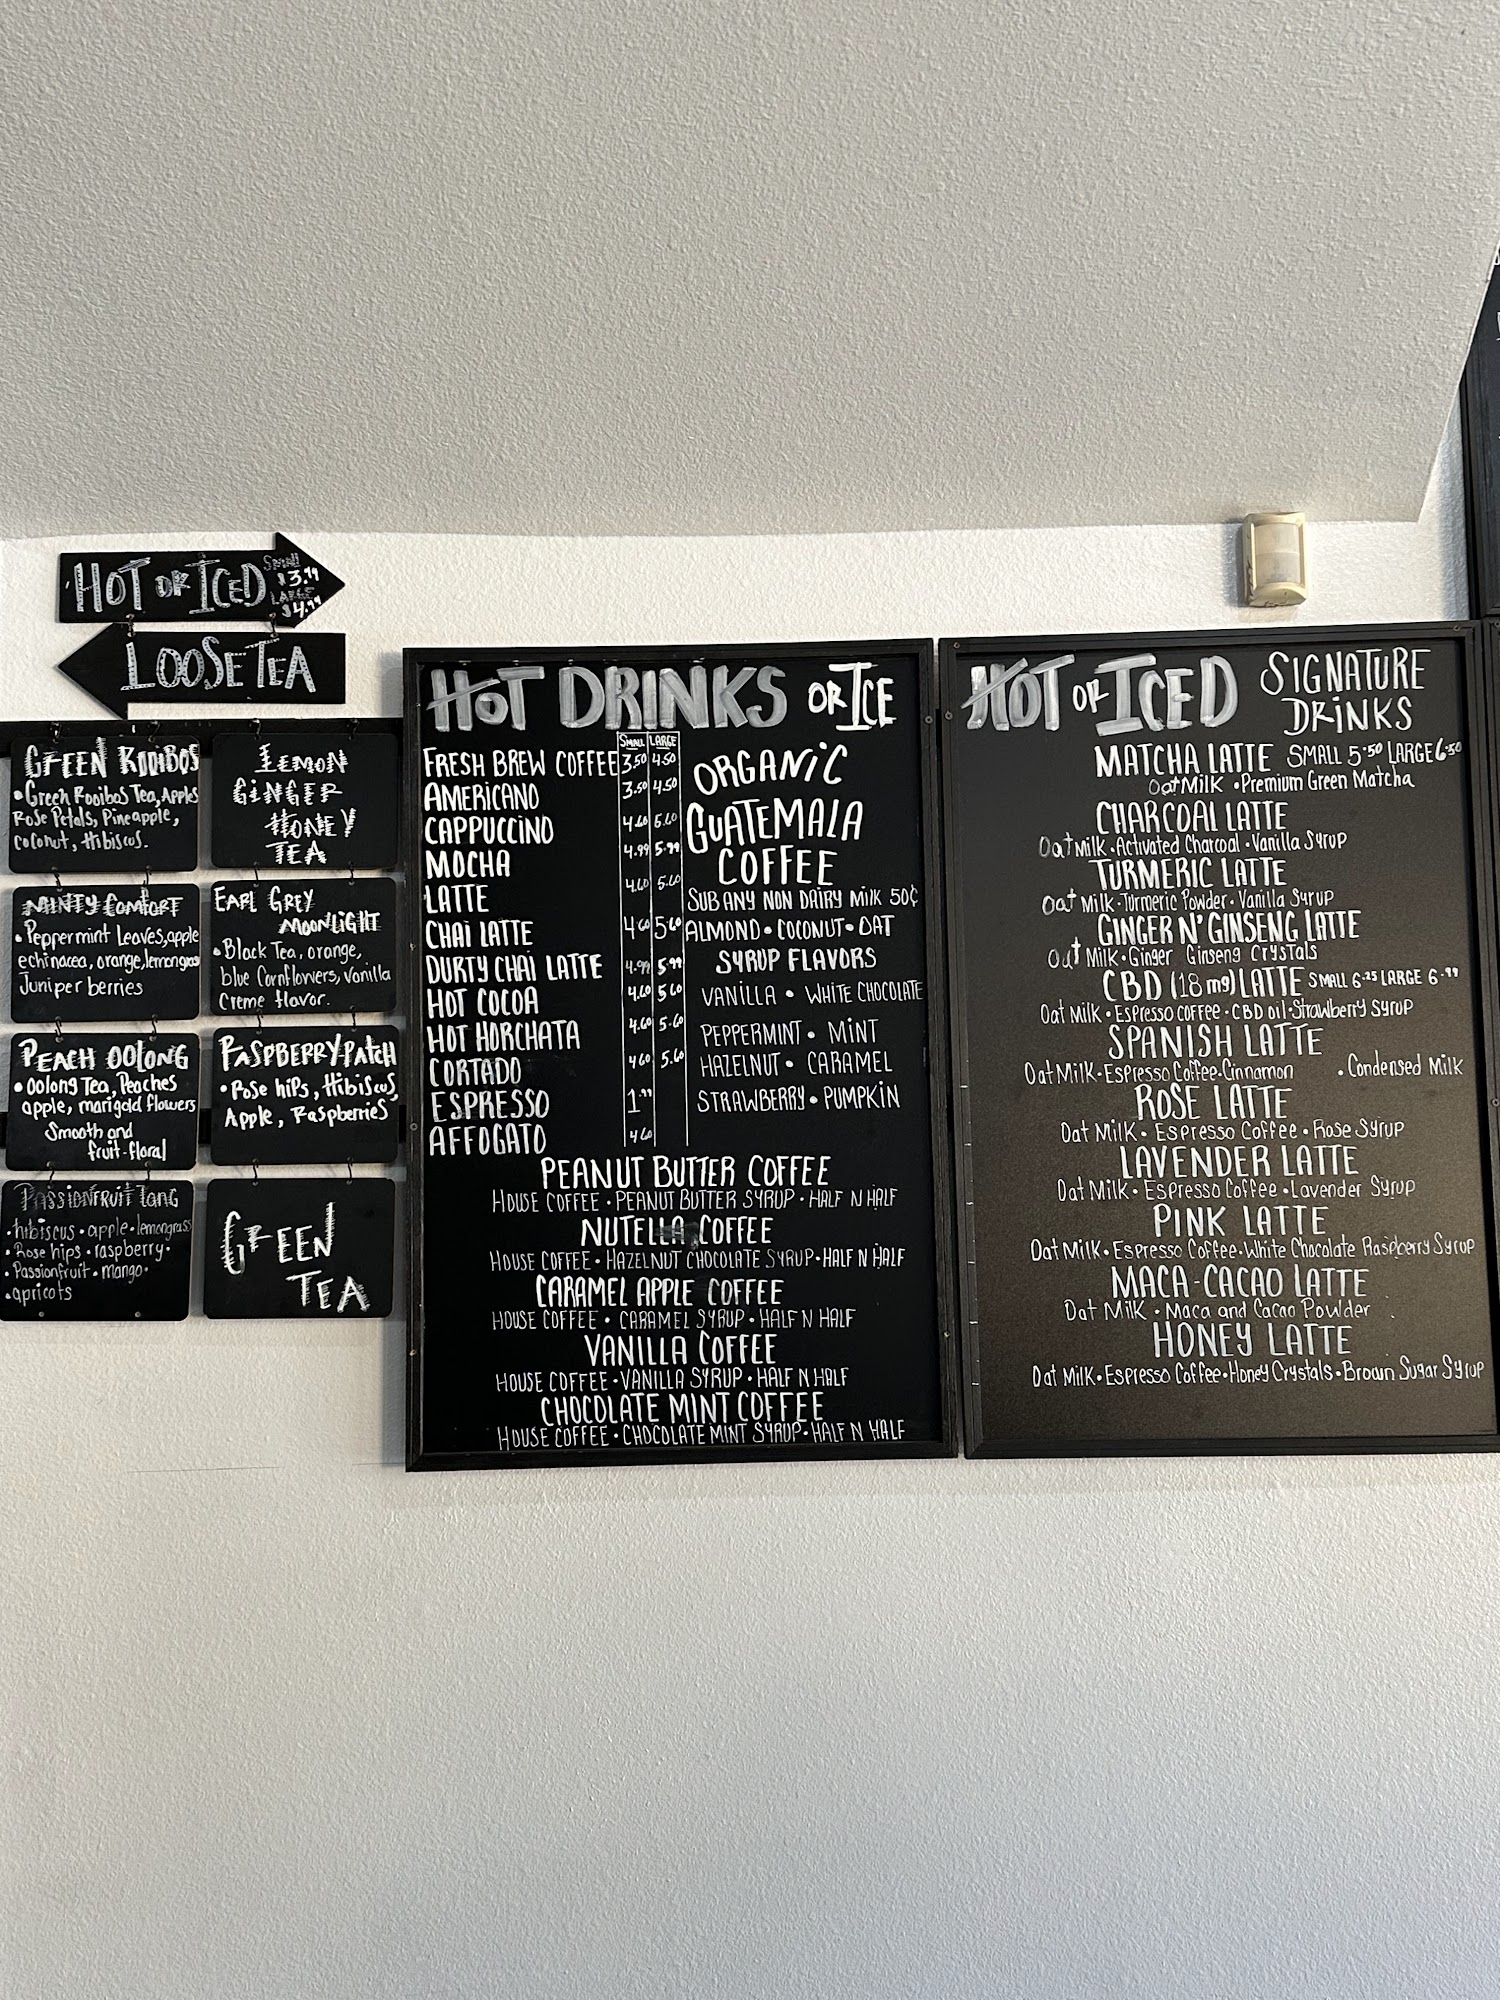 HOT OR ICED
SMALL
$3.99
LARGE
$4.99
LOOSE TEA
GREEN ROOIBOS
• Green Rooibos Tea, Apples
Rose Petals, Pineapple,
coconut, Hibiscus.
LEMON
GINGER
HONEY
TEA
MINTY COMFORT
• Peppermint Leaves, apple
echinacea, orange, lemongrass
Juniper berries
EARL GREY
MOONLIGHT
• Black Tea, orange,
blue Cornflowers, Vanilla
Creme flavor.
PEACH OOLONG
• Oolong Tea, Peaches
apple, marigold flowers
Smooth and
fruit-floral
RASPBERRY PATCH
• Rose hips, Hibiscus,
Apple, Raspberries
PASSIONFRUIT TANG
• hibiscus • apple • lemongrass
• Rose hips • raspberry •
• Passionfruit • mango •
• apricots
GREEN
TEA
HOT DRINKS OR ICE
SMALL LARGE
FRESH BREW COFFEE 3.50 4.50
AMERICANO 3.50 4.50
CAPPUCCINO 4.60 5.60
MOCHA 4.99 5.99
LATTE 4.60 5.60
CHAI LATTE 4.60 5.60
DURTY CHAI LATTE 4.99 5.99
HOT COCOA 4.60 5.60
HOT HORCHATA 4.60 5.60
CORTADO 4.60 5.60
ESPRESSO 1.99
AFFOGATO 4.60
ORGANIC
GUATEMALA
COFFEE
SUB ANY NON DAIRY MILK 50¢
ALMOND • COCONUT • OAT
SYRUP FLAVORS
VANILLA • WHITE CHOCOLATE
PEPPERMINT • MINT
HAZELNUT • CARAMEL
STRAWBERRY • PUMPKIN
PEANUT BUTTER COFFEE
HOUSE COFFEE • PEANUT BUTTER SYRUP • HALF N HALF
NUTELLA COFFEE
HOUSE COFFEE • HAZELNUT CHOCOLATE SYRUP • HALF N HALF
CARAMEL APPLE COFFEE
HOUSE COFFEE • CARAMEL SYRUP • HALF N HALF
VANILLA COFFEE
HOUSE COFFEE • VANILLA SYRUP • HALF N HALF
CHOCOLATE MINT COFFEE
HOUSE COFFEE • CHOCOLATE MINT SYRUP • HALF N HALF
HOT OR ICED SIGNATURE
DRINKS
MATCHA LATTE SMALL 5.50 LARGE 6.50
Oat Milk • Premium Green Matcha
CHARCOAL LATTE
Oat Milk • Activated Charcoal • Vanilla Syrup
TURMERIC LATTE
Oat Milk • Turmeric Powder • Vanilla Syrup
GINGER N' GINSENG LATTE
Oat Milk • Ginger Ginseng Crystals
CBD (18 mg) LATTE SMALL 6.25 LARGE 6.99
Oat Milk • Espresso coffee • CBD oil • Strawberry Syrup
SPANISH LATTE
Oat Milk • Espresso Coffee • Cinnamon • Condensed Milk
ROSE LATTE
Oat Milk • Espresso Coffee • Rose Syrup
LAVENDER LATTE
Oat Milk • Espresso Coffee • Lavender Syrup
PINK LATTE
Oat Milk • Espresso Coffee • White Chocolate Raspberry Syrup
MACA-CACAO LATTE
Oat Milk • Maca and Cacao Powder
HONEY LATTE
Oat Milk • Espresso Coffee • Honey Crystals • Brown Sugar Syrup